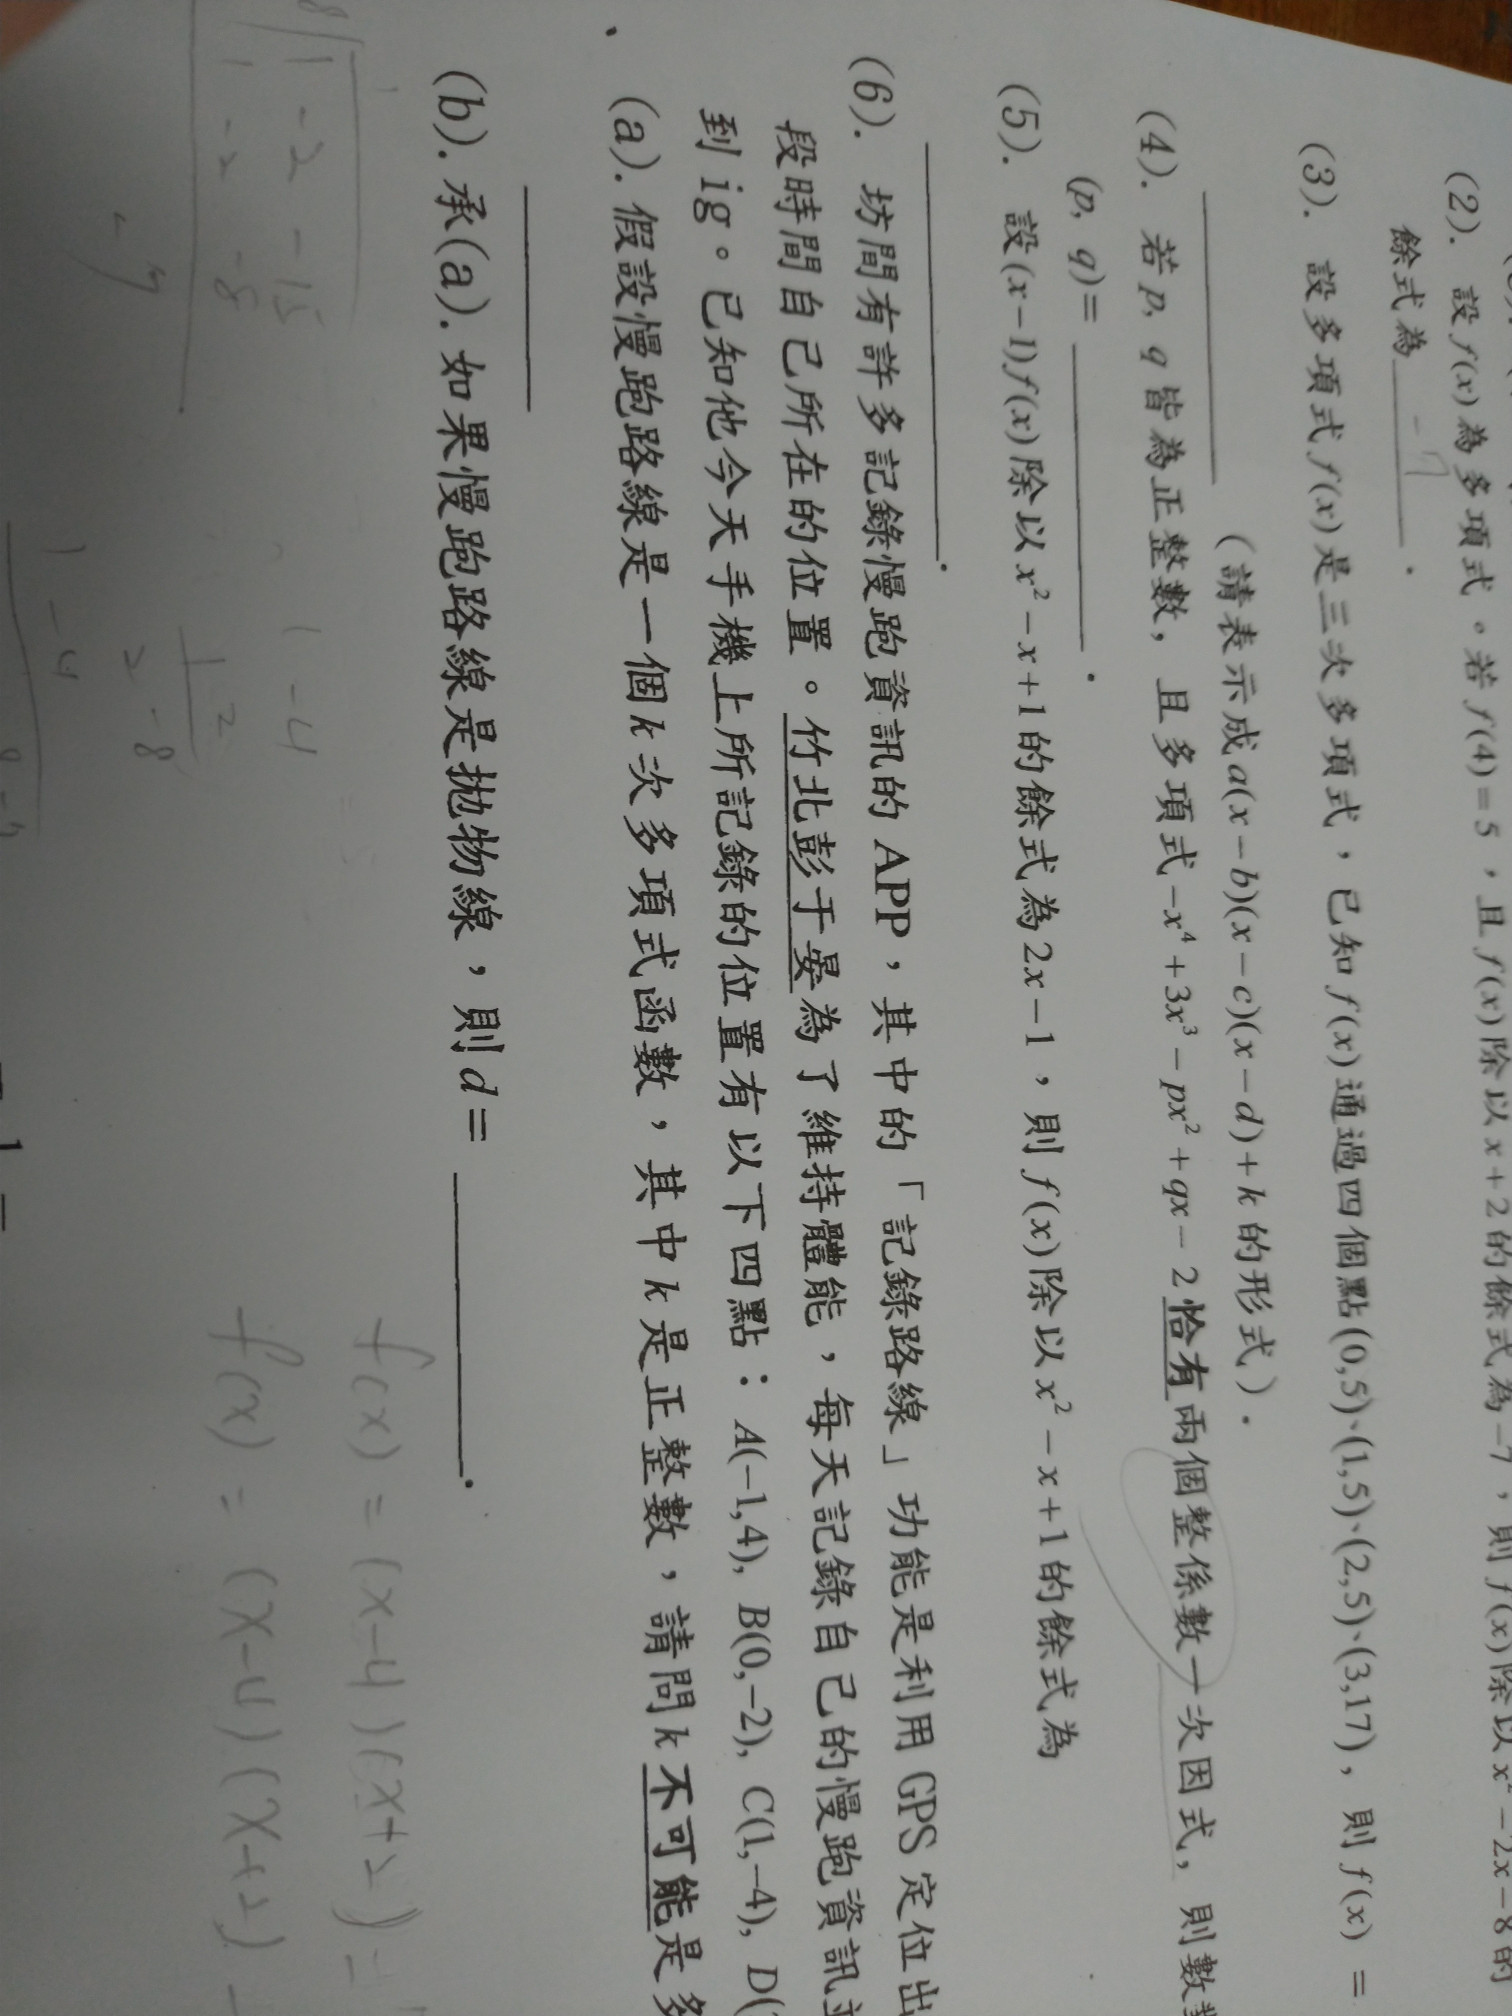 (2). 設f(x)為多項式。若f(4)=5，且f(x)除以x+2的餘式為-7，則f(x)除以x²-2x-8的
餘式為 -7 .
(3). 設多項式f(x)是三次多項式，已知f(x)通過四個點(0,5)、(1,5)、(2,5)、(3,17)，則f(x) =
(請表示成a(x-b)(x-c)(x-d)+k的形式).
(4). 若p, q皆為正整數，且多項式-x⁴+3x³-px²+qx-2恰有兩個整係數一次因式，則數
(p, q)= .
(5). 設(x-1)f(x)除以x²-x+1的餘式為2x-1，則f(x)除以x²-x+1的餘式為
.
(6). 坊間有許多記錄慢跑資訊的APP，其中的「記錄路線」功能是利用GPS定位出
段時間自己所在的位置。竹北彭于晏為了維持體能，每天記錄自己的慢跑資訊
到ig。已知他今天手機上所記錄的位置有以下四點：A(-1,4), B(0,-2), C(1,-4), D(
(a). 假設慢跑路線是一個k次多項式函數，其中k是正整數，請問k不可能是多
.
(b). 承(a). 如果慢跑路線是拋物線，則d= .
f(x) = (x-4)(x+2) =
f(x) = (x-4)(x+2)
1 -2 -15
-2 -8
1 -4
1 2
2 -8
1 -4
-7